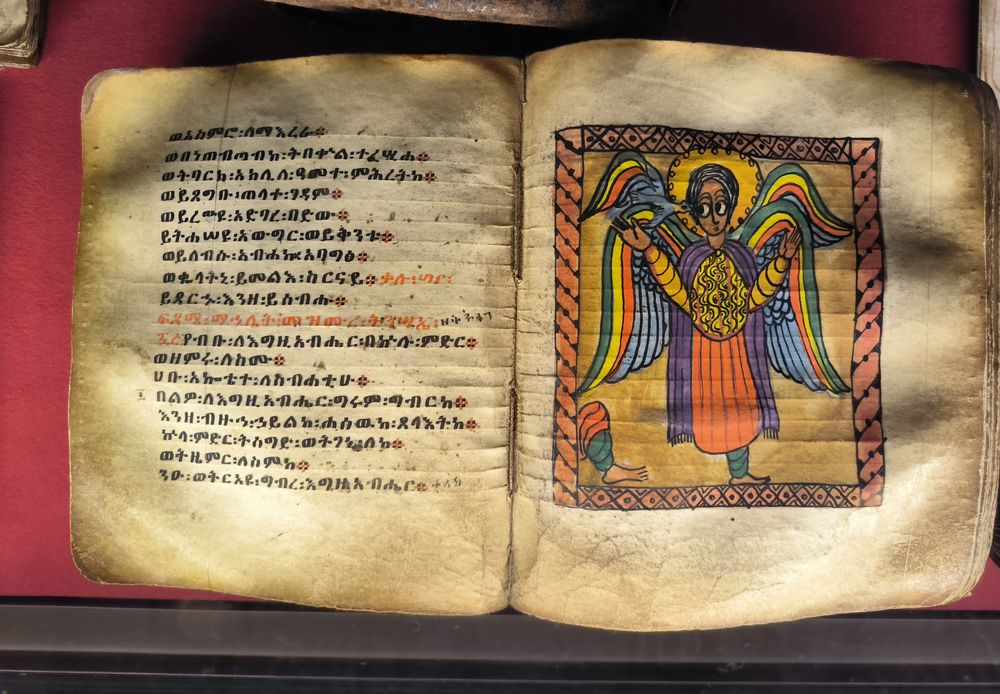 ወአስምሮ፡ለማእረራ፨
ወበነጠብጣብከ፡ትበቍል፡ተፈሢሓ፨
ወትባርክ፡አክሊለ፡ዓመተ፡ምሕረትከ፨
ወይጸግቡ፡ጠላተ፡ገዳም፨
ወይረውዩ፡አድባረ፡በድው፨
ይትሐሠዩ፡አውግር፡ወይቅንቱ፨
ወይለብሱ፡አብሐኰ፡አባግዕ፨
ወቈላትኒ፡ይመልእ፡ስርናየ፨
ይጸርኁ፡እንዘ፡ይሴብሑ፨
ፍጻሜ፡ማኅሌት፡መዝሙር፡ትንሣኤ፡
የብቡ፡ለእግዚአብሔር፡በኵሉ፡ምድር፨
ወዘምሩ፡ለስሙ፨
ሀቡ፡አኰቴተ፡ለስብሐቲሁ፨
በልዎ፡ለእግዚአብሔር፡ግሩም፡ግብርከ፨
እንዘ፡ብዙኅ፡ኃይልከ፡ሐሰዉከ፡ጸላእትከ፨
ኵላ፡ምድር፡ትሰግድ፡ወትገኒ፡ለከ፨
ወትዜምር፡ለስምከ፨
ንዑ፡ወትርአዩ፡ግብረ፡እግዚአብሔር፨